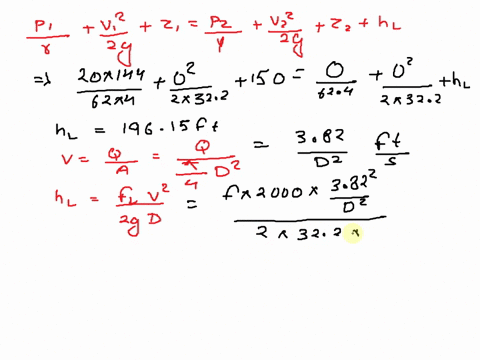 P1/γ + V1²/2g + Z1 = P2/γ + V2²/2g + Z2 + hL
⇒ 20×144/62×4 + 0²/2×32.2 + 150 = 0/62.4 + 0²/2×32.2 + hL
hL = 196.15 ft
V = Q/A = Q/(π/4 D²) = 3.82/D² ft/s
hL = fL V²/2gD = f×2000×3.82²/D² / 2×32.2×